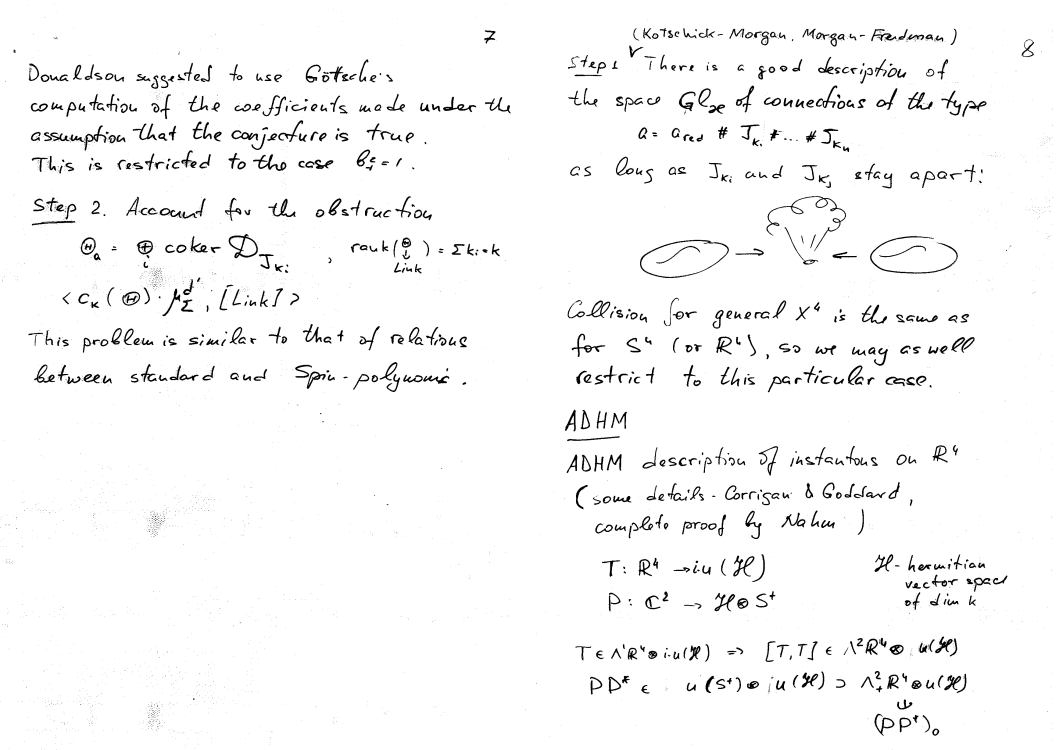 7
Donaldson suggested to use Göttsche's
computation of the coefficients made under the
assumption that the conjecture is true.
This is restricted to the case b₊ᶜ = 1.
Step 2. Account for the obstruction
Θₐ = ⊕ᵢ coker D_{J_{kᵢ}} , rank(Θ ↓ Link) = Σkᵢ = k
< c_k(Θ) · μ_Σ^{d'}, [Link] >
This problem is similar to that of relations
between standard and Spin-polynomi.
8
(Kotschick-Morgan, Morgan-Freedman)
Step 1 ∨ There is a good description of
the space Gl_æ of connections of the type
a = a_red # J_{k₁} # ... # J_{kₙ}
as long as J_{kᵢ} and J_{kⱼ} stay apart:
Collision for general X⁴ is the same as
for S⁴ (or R⁴), so we may as well
restrict to this particular case.
ADHM
ADHM description of instantons on R⁴
(some details - Corrigan & Goddard,
complete proof by Nahm)
T: R⁴ → iu(ℋ)
ℋ - hermitian
vector space
of dim k
P: C² → ℋ⊗S⁺
T ∈ Λ¹R⁴⊗iu(ℋ) => [T,T] ∈ Λ²R⁴⊗ u(ℋ)
PP* ∈ u(S⁺)⊗iu(ℋ) ⊃ Λ²₊R⁴⊗u(ℋ)
∪
(PP*)₀